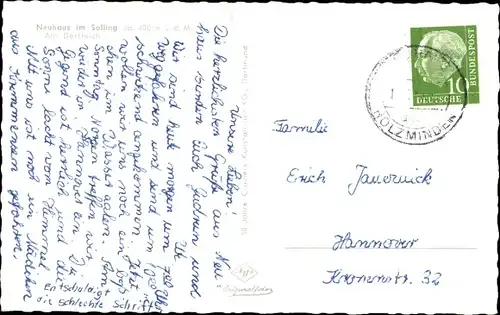 Neuhaus im Solling ca. 400 m ü. d. M.
Am Dorfteich
Unsere Lieben!
Die herzlichsten Grüße aus Neu
haus senden Euch Gudrun und
Wir sind heut morgen um
weggefahren und sind um
schwitzend angekommen. Jetzt
wollen wir uns noch ein
im Wasser aalen. Am
Sonntag Morgen treffen wir
wieder in Hannover ein. Die
Gegend ist herrlich und die
Sonne lacht vom Himmel.
Mit uns ist noch ein Mädchen
aus Hannover gefahren.
Entschuldigt
die schlechte Schrift!
50 Jahre
Dortmund
Agfa
Originalfoto
HOLZMINDEN
10
DEUTSCHE
BUNDESPOST
Familie
Erich Jauernick
Hannover
Kronenstr. 32